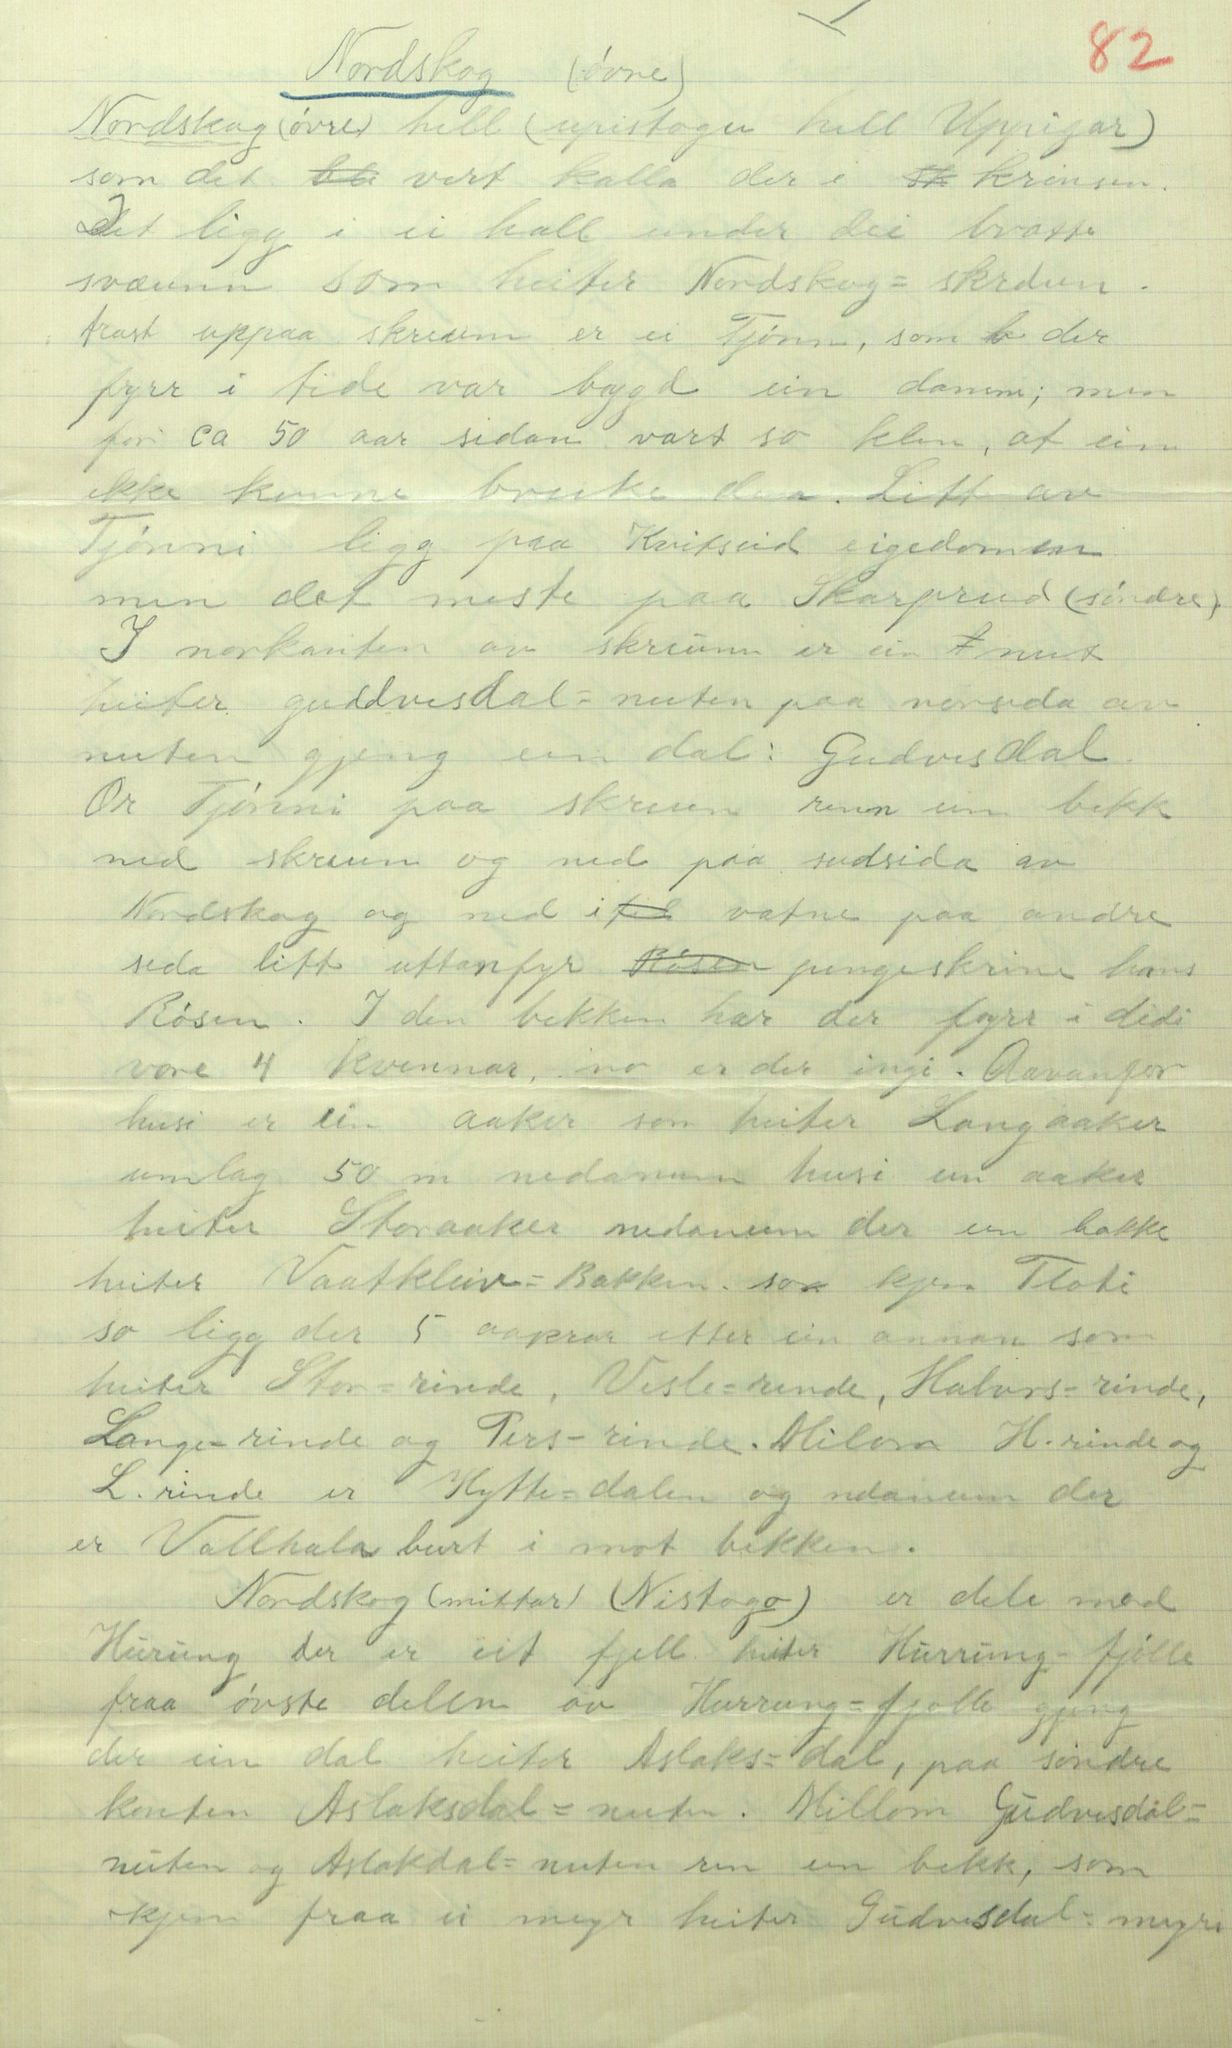 82
Nordskog (óvre)
Nordskog (óvre) hell (upistogu hell Uppigar)
som det vert kalla der i krinsen.
Det ligg i ei hall under dei bratte
svæunn som heiter Nordskog=skreun.
trast uppaa skreunn er ei Tjónn, som der
fyrr i tide var bygd ein damm; men
for ca 50 aar sidan vart so klen, at ein
ikke kunne bruke daa. Litt av
Tjónni ligg paa Kvitseid eigedomen
men det meste paa Skarprud (sóndre).
I norkanten av skreunn er ein nut
heiter guddvesdal=nuten paa norsida av
nuten gjeng ein dal: Gudvesdal.
Or Tjónni paa skreun renn ein bekk
ned skreun og ned paa sudsida av
Nordskog og ned i vatne paa andre
sida litt uttanfyr pengeskrine hans
Rósen. I den bekken har der fyrr i didi
vore 4 kvennar, no er der ingi. Aavanfor
husi er ein aaker som heiter Langaaker
umlag 50 m nedanum husi ein aaker
heiter Storaaker nedanum der ein bakke
heiter Vaatkleiv=Bakken. so kjem Tloti
so ligg der 5 aakrar etter ein annan som
heiter Stor=rinde, Vesle=rinde, Halvors=rinde,
Lange=rinde og Pers=rinde. Milom H.rinde og
L.rinde er Hytte=dalen og nedanum der
er Vallhala burt i mot bekken.
Nordskog (mittar) (Nistogo) er dele med
Hurung der er eit fjell heiter Hurrung=fjólle
fraa óvste delen av Hurrung=fjolle gjeng
der ein dal heiter Aslaks=dal, paa sóndre
kanten Aslaksdal=nuten. Millom Gudvesdal=
nuten og Aslakdal=nuten ren ein bekk, som
kjem fraa ei myr heiter Gudvesdal=myri